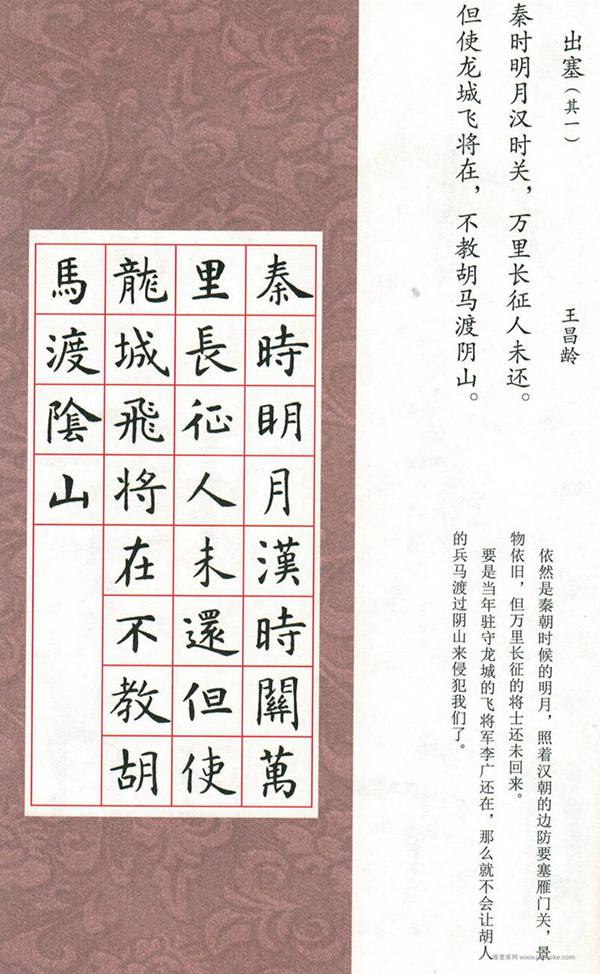 出塞（其一）
王昌龄
秦时明月汉时关，万里长征人未还。
但使龙城飞将在，不教胡马渡阴山。
依然是秦朝时候的明月，照着汉朝的边防要塞雁门关，景
物依旧，但万里长征的将士还未回来。
要是当年驻守龙城的飞将军李广还在，那么就不会让胡人
的兵马渡过阴山来侵犯我们了。
秦時明月漢時關萬
里長征人未還但使
龍城飛将在不教胡
馬渡陰山